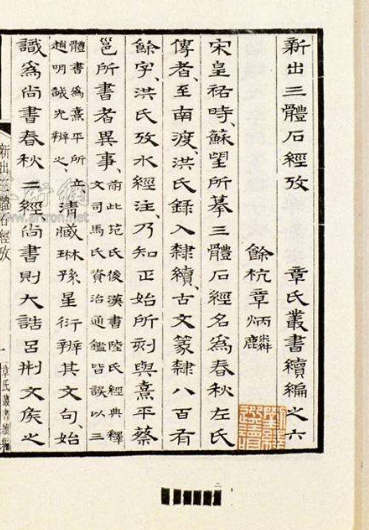 新出三體石經攷　章氏叢書續編之六
餘杭章炳麟
宋皇祐時、蘇望所摹三體石經名爲春秋左氏
傳者、至南渡、洪氏錄入隸續、古文篆隸八百有
餘字、洪氏攷水經注、乃知正始所刻與熹平蔡
邕所書者異事、前此范氏後漢書陸氏經典釋
文司馬氏資治通鑑皆誤以三
體書爲熹平所立
趙明誠尤辨之、清臧琳孫星衍辨其文句、始
識爲尚書春秋二經尚書則大誥呂刑文侯之
新出三體石經攷
一
章氏叢書續編